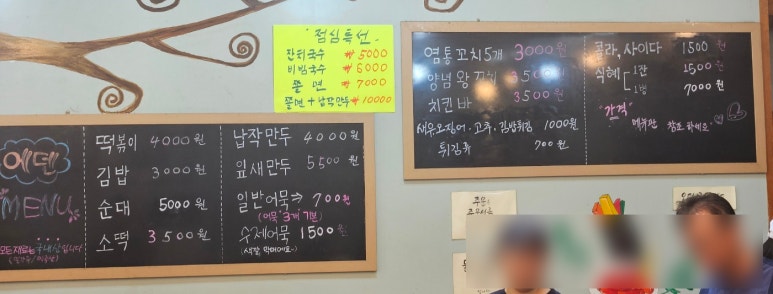 점심특선
잔치국수 ₩5000
비빔국수 ₩6000
쫄면 ₩7000
쫄면+납작만두 ₩10000
에덴
MENU
모든 재료는 국내산입니다
떡볶이 4000원
김밥 3000원
순대 5000원
소떡 3500원
납작만두 4000원
잎새만두 5500원
일반어묵⇒ 700원
(어묵 3개 기본)
수제어묵 1500원
염통꼬치5개 3000원
양념왕꼬치 3500원
치킨바 3500원
새우·오징어·고추·김밥튀김 1000원
튀김류 700원
콜라, 사이다 1500원
식혜 1잔 1500원
1병 7000원
"가격"
메뉴판 참조하세요